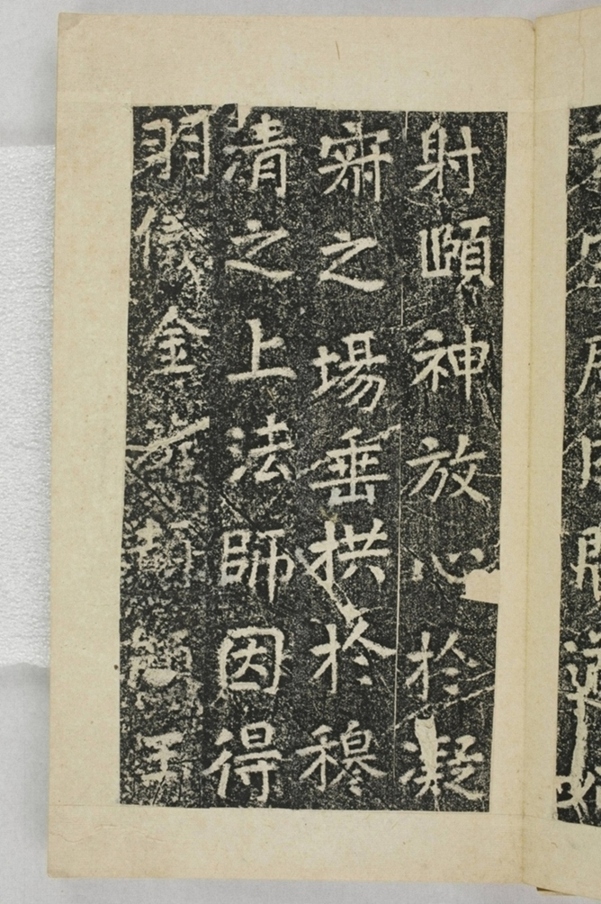 射頤神放心於凝
齋之場垂拱於穆
清之上法師因得
羽儀金